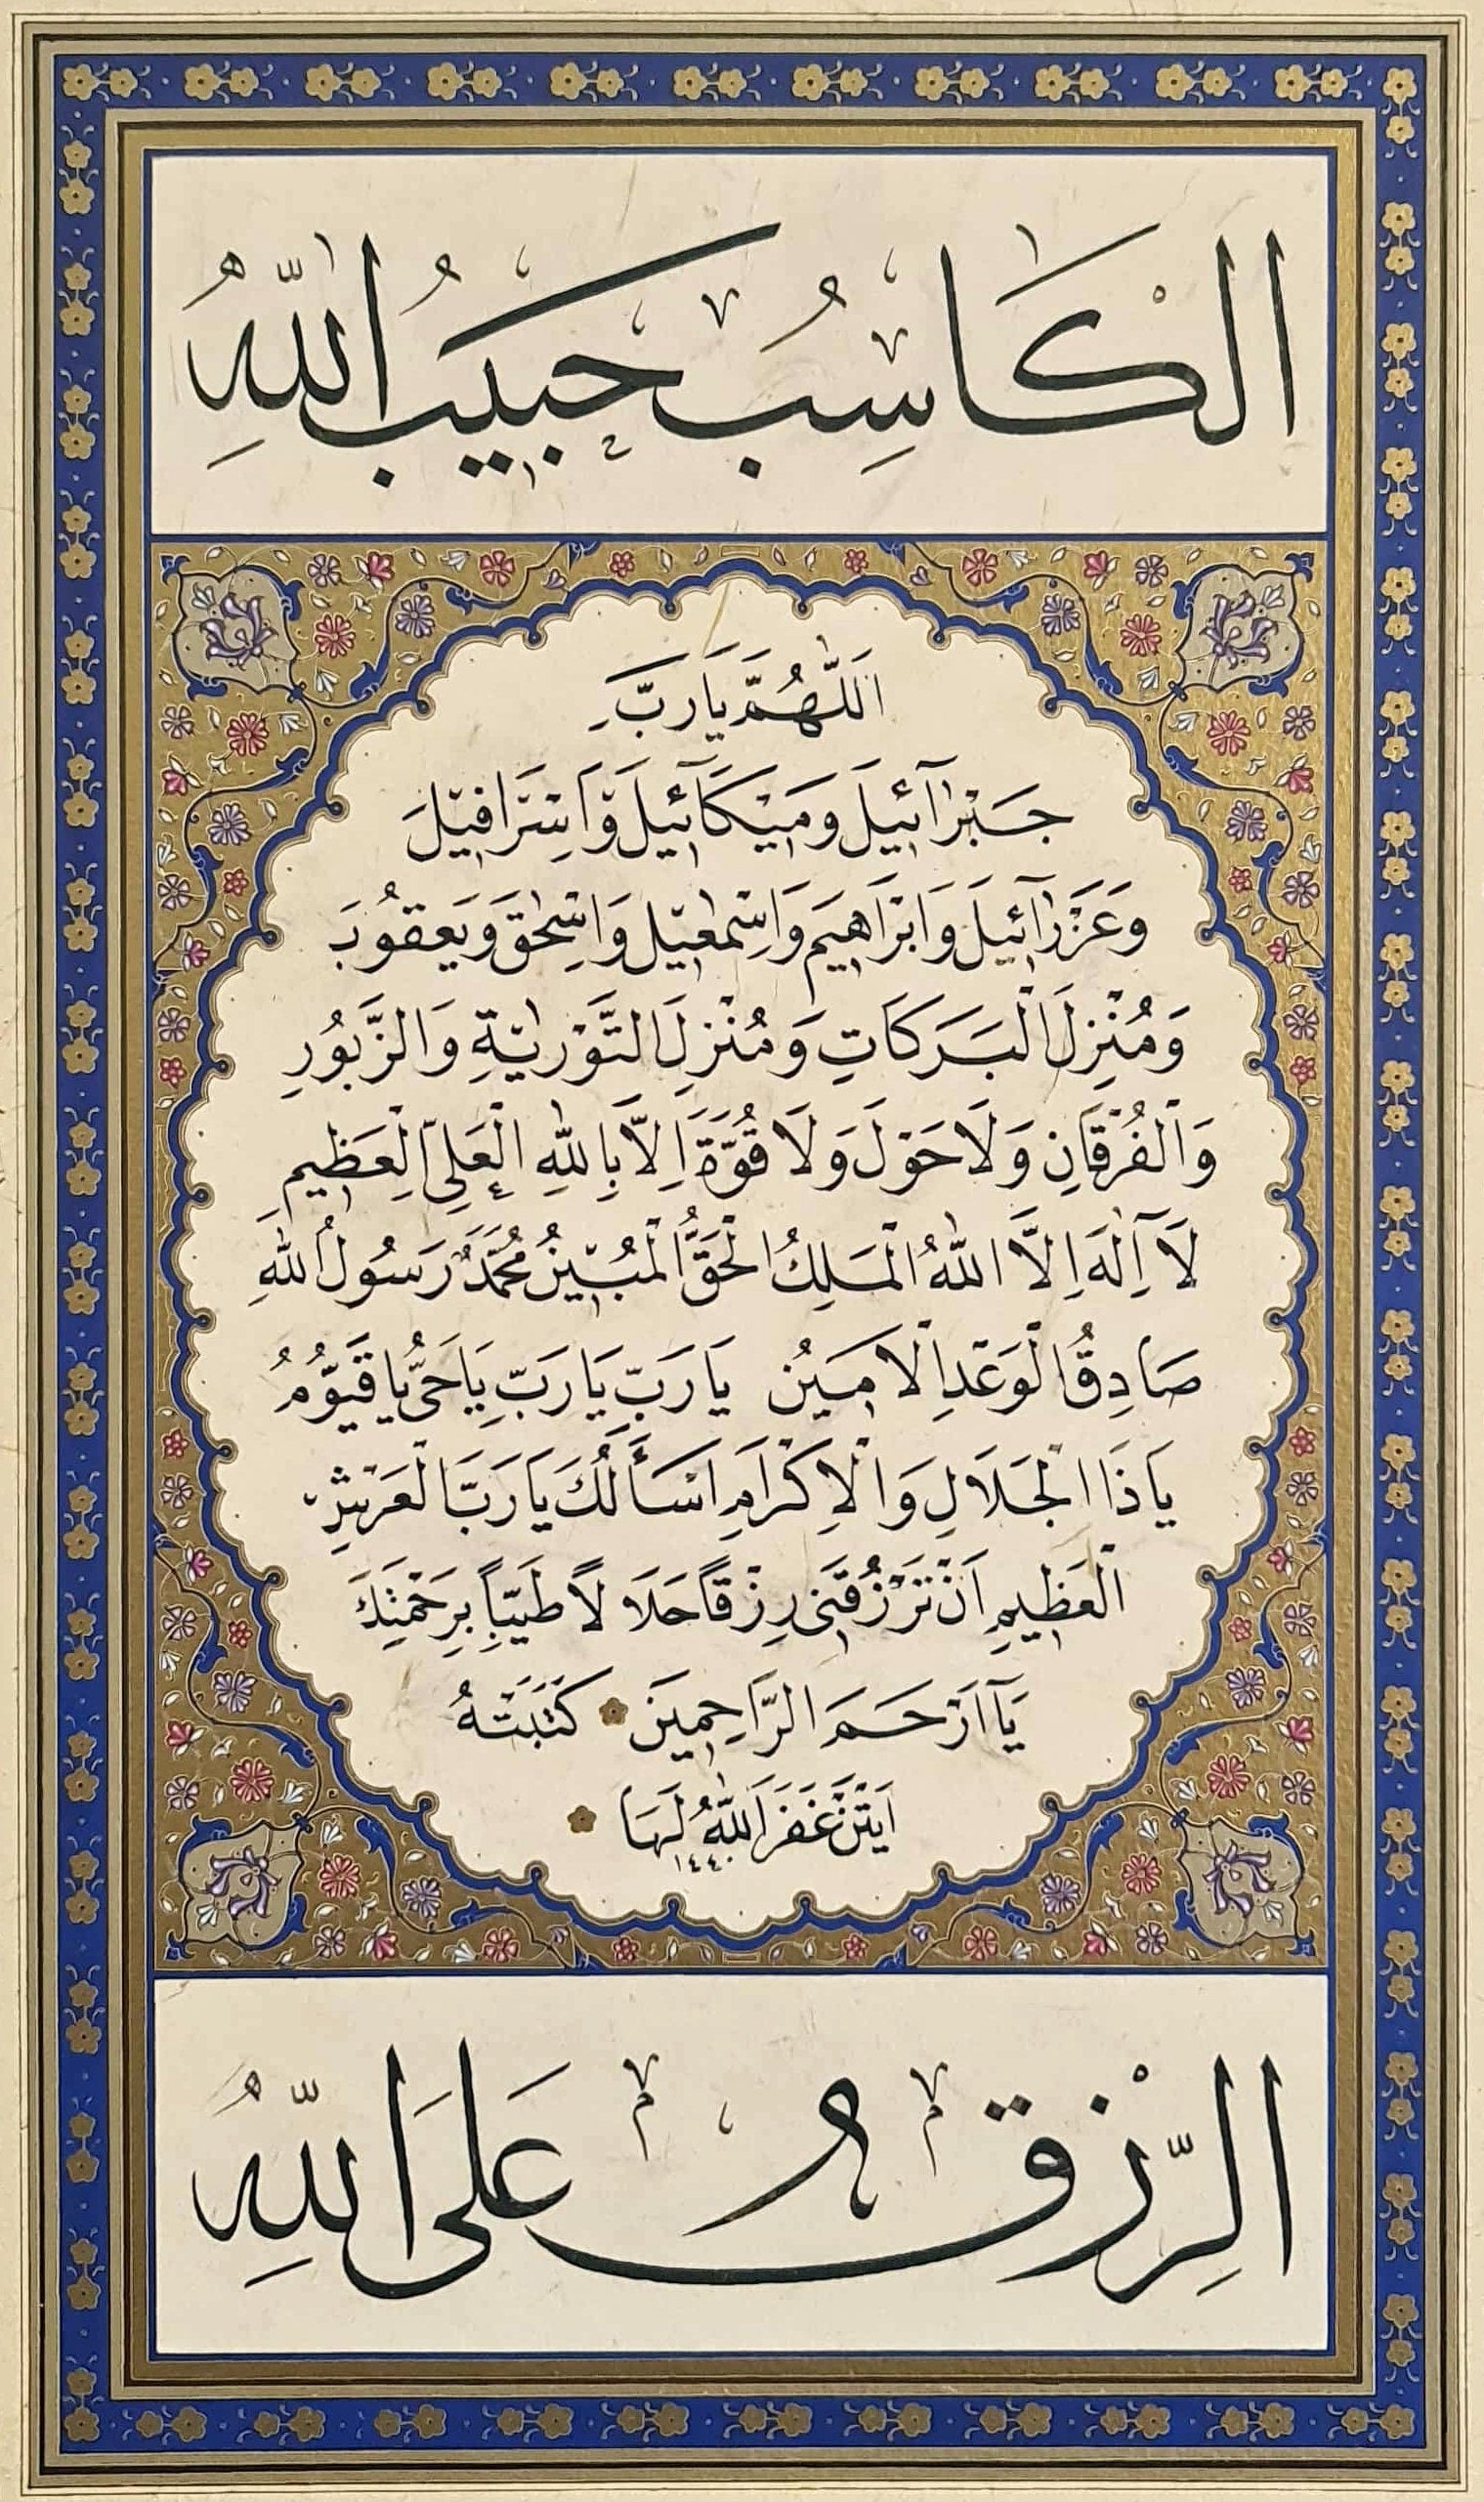 الكَاسِبُ حَبِيبُ اللّٰهِ
اَللّٰهُمَّ يَارَبَّ
جَبْرَآئِيلَ وَمِيكَآئِيلَ وَاِسْرَافِيلَ
وَعَزْرَآئِيلَ وَاِبْرَاهِيمَ وَاِسْمٰعِيلَ وَاِسْحٰقَ وَيَعقُوبَ
وَمُنْزِلَ الْبَرَكَاتِ وَمُنْزِلَ التَّوْرٰيةِ وَالزَّبُورِ
وَالْفُرْقَانِ وَلَاحَوْلَ وَلَا قُوَّةَ اِلَّا بِاللّٰهِ الْعَلِىِّ الْعَظِيمِ
لَا اِلٰهَ اِلَّا اللّٰهُ الْمَلِكُ الْحَقُّ الْمُبِينُ مُحَمَّدٌ رَسُولُ اللّٰهِ
صَادِقُ الْوَعْدِ الْاَمِينُ يَارَبِّ يَارَبِّ يَاحَىُّ يَاقَيُّومُ
يَاذَا الْجَلَالِ وَالْاِكْرَامِ اَسْأَلُكَ يَارَبَّ الْعَرْشِ
الْعَظِيمِ اَنْ تَرْزُقَنِى رِزْقًا حَلَالًا طَيِّبًا بِرَحْمَتِكَ
يَآ اَرْحَمَ الرَّاحِمِينَ كَتَبَتْهُ
اَيتَن غَفَرَ اللّٰهُ لَهَا
١٤٤٠
الرِّزْقُ عَلَى اللّٰهِ